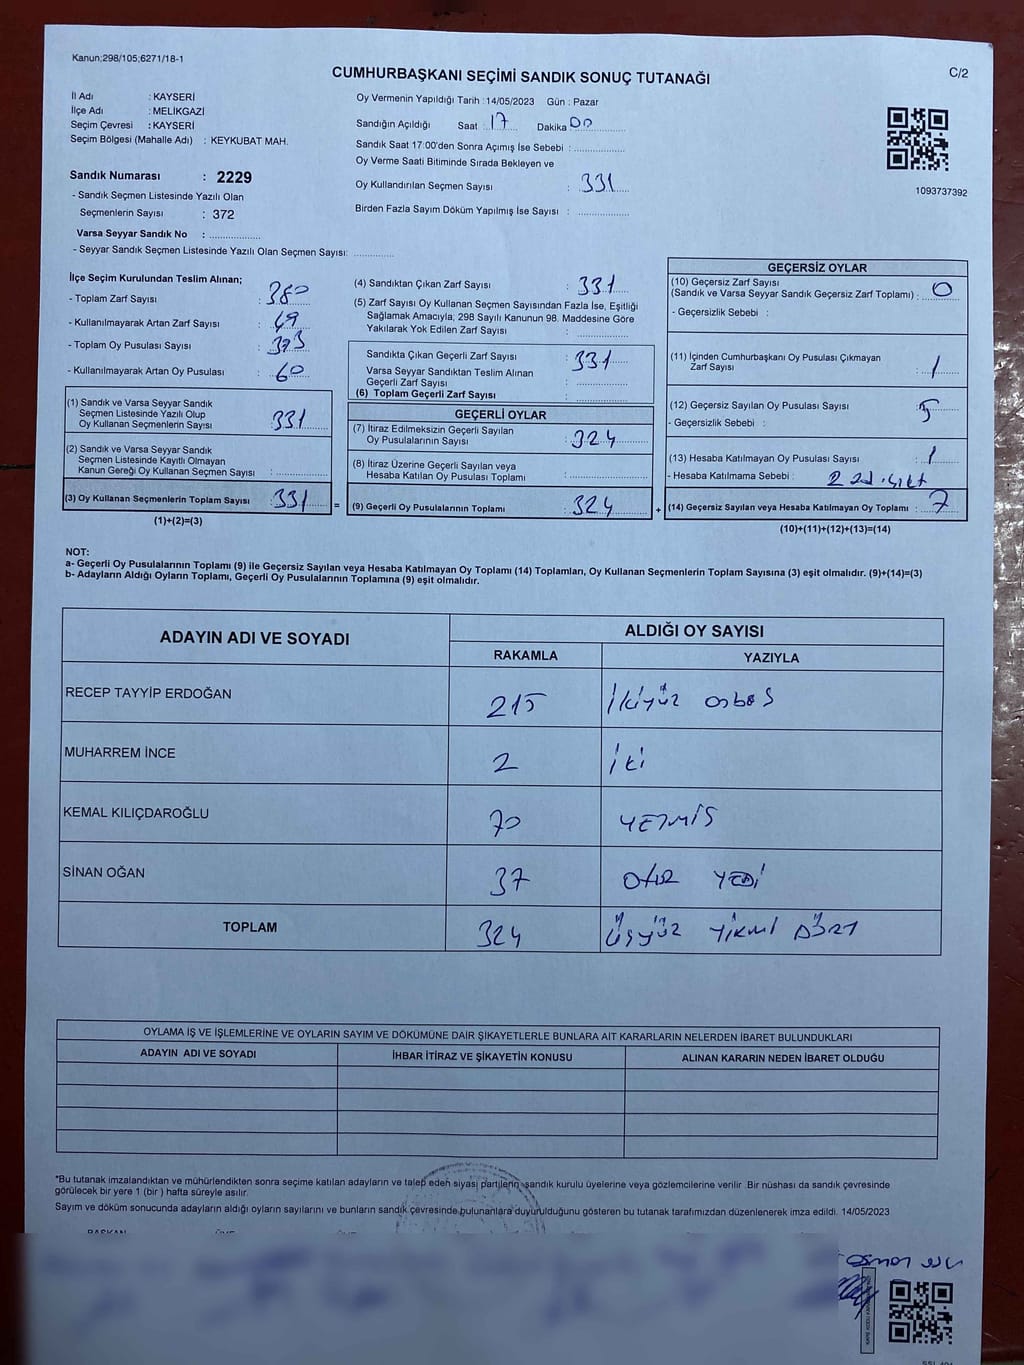 Kanun;298/105;6271/18-1
CUMHURBAŞKANI SEÇİMİ SANDIK SONUÇ TUTANAĞI
C/2
İl Adı : KAYSERİ
İlçe Adı : MELİKGAZİ
Seçim Çevresi : KAYSERİ
Seçim Bölgesi (Mahalle Adı) : KEYKUBAT MAH.
Sandık Numarası : 2229
- Sandık Seçmen Listesinde Yazılı Olan
Seçmenlerin Sayısı : 372
Varsa Seyyar Sandık No : ..................
- Seyyar Sandık Seçmen Listesinde Yazılı Olan Seçmen Sayısı: ..............
Oy Vermenin Yapıldığı Tarih : 14/05/2023 Gün : Pazar
Sandığın Açıldığı Saat : 17 Dakika 00
Sandık Saat 17:00'den Sonra Açımış İse Sebebi : ..............
Oy Verme Saati Bitiminde Sırada Bekleyen ve
Oy Kullandırılan Seçmen Sayısı : 331
Birden Fazla Sayım Döküm Yapılmış İse Sayısı : ..............
1093737392
İlçe Seçim Kurulundan Teslim Alınan;
- Toplam Zarf Sayısı : 380
- Kullanılmayarak Artan Zarf Sayısı : 49
- Toplam Oy Pusulası Sayısı :
- Kullanılmayarak Artan Oy Pusulası : 60
(1) Sandık ve Varsa Seyyar Sandık
Seçmen Listesinde Yazılı Olup
Oy Kullanan Seçmenlerin Sayısı : 331
(2) Sandık ve Varsa Seyyar Sandık
Seçmen Listesinde Kayıtlı Olmayan
Kanun Gereği Oy Kullanan Seçmen Sayısı : ..............
(3) Oy Kullanan Seçmenlerin Toplam Sayısı : 331 =
(1)+(2)=(3)
(4) Sandıktan Çıkan Zarf Sayısı : 331
(5) Zarf Sayısı Oy Kullanan Seçmen Sayısından Fazla İse, Eşitliği
Sağlamak Amacıyla; 298 Sayılı Kanunun 98. Maddesine Göre
Yakılarak Yok Edilen Zarf Sayısı : ..............
Sandıkta Çıkan Geçerli Zarf Sayısı : 331
Varsa Seyyar Sandıktan Teslim Alınan
Geçerli Zarf Sayısı : ..............
(6) Toplam Geçerli Zarf Sayısı : ..............
GEÇERLİ OYLAR
(7) İtiraz Edilmeksizin Geçerli Sayılan
Oy Pusulalarının Sayısı : 324
(8) İtiraz Üzerine Geçerli Sayılan veya
Hesaba Katılan Oy Pusulaları Toplamı : ..............
(9) Geçerli Oy Pusulalarının Toplamı : 324 +
GEÇERSİZ OYLAR
(10) Geçersiz Zarf Sayısı
(Sandık ve Varsa Seyyar Sandık Geçersiz Zarf Toplamı) : 0
- Geçersizlik Sebebi :
(11) İçinden Cumhurbaşkanı Oy Pusulası Çıkmayan
Zarf Sayısı : 1
(12) Geçersiz Sayılan Oy Pusulası Sayısı : 5
- Geçersizlik Sebebi :
(13) Hesaba Katılmayan Oy Pusulası Sayısı : 1
- Hesaba Katılmama Sebebi :
(14) Geçersiz Sayılan veya Hesaba Katılmayan Oy Toplamı : 7
(10)+(11)+(12)+(13)=(14)
NOT:
a- Geçerli Oy Pusulalarının Toplamı (9) ile Geçersiz Sayılan veya Hesaba Katılmayan Oy Toplamı (14) Toplamları, Oy Kullanan Seçmenlerin Toplam Sayısına (3) eşit olmalıdır. (9)+(14)=(3)
b- Adayların Aldığı Oyların Toplamı, Geçerli Oy Pusulalarının Toplamına (9) eşit olmalıdır.
ADAYIN ADI VE SOYADI
ALDIĞI OY SAYISI
RAKAMLA YAZIYLA
RECEP TAYYİP ERDOĞAN 215 ikiyüz onbeş
MUHARREM İNCE 2 iki
KEMAL KILIÇDAROĞLU 70 YETMİŞ
SİNAN OĞAN 37 Otuz YEDİ
TOPLAM 324 üçyüz YİRMİ DÖRT
OYLAMA İŞ VE İŞLEMLERİNE VE OYLARIN SAYIM VE DÖKÜMÜNE DAİR ŞİKAYETLERLE BUNLARA AİT KARARLARIN NELERDEN İBARET BULUNDUKLARI
ADAYIN ADI VE SOYADI İHBAR İTİRAZ VE ŞİKAYETİN KONUSU ALINAN KARARIN NEDEN İBARET OLDUĞU
*Bu tutanak imzalandıktan ve mühürlendikten sonra seçime katılan adayların ve talep eden siyasi partilerin, sandık kurulu üyelerine veya gözlemcilerine verilir .Bir nüshası da sandık çevresinde
görülecek bir yere 1 (bir ) hafta süreyle asılır.
Sayım ve döküm sonucunda adayların aldığı oyların sayılarını ve bunların sandık çevresinde bulunanlara duyurulduğunu gösteren bu tutanak tarafımızdan düzenlenerek imza edildi. 14/05/2023
BAŞKAN ÜYE ÜYE